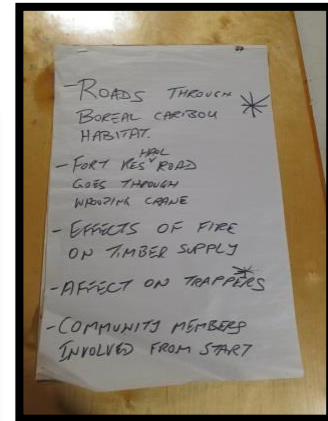 - ROADS THROUGH
BOREAL CARIBOU
HABITAT.
- FORT RES HAUL ROAD
GOES THROUGH
WHOOPING CRANE
- EFFECTS OF FIRE
ON TIMBER SUPPLY
- AFFECT ON TRAPPERS
- COMMUNITY MEMBERS
INVOLVED FROM START